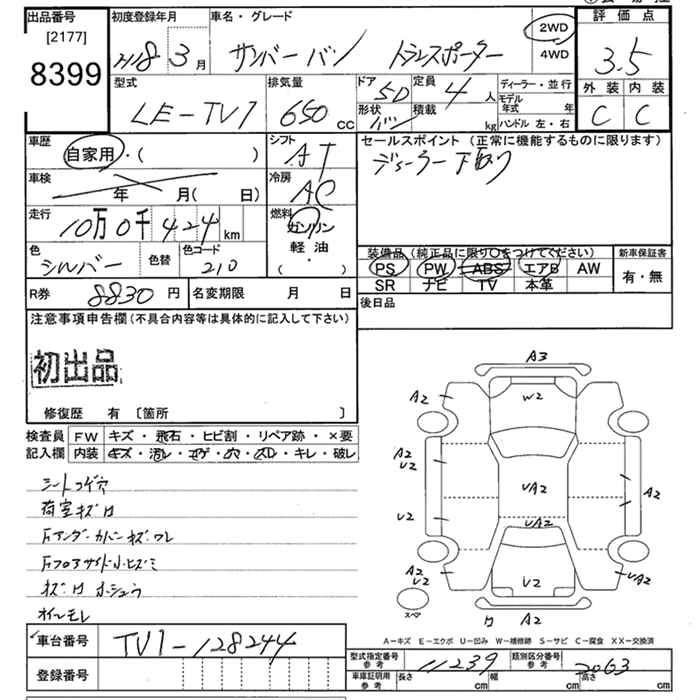 出品番号
[2177]
8399
初度登録年月
H18 3月
車名・グレード
サンバーバン トランスポーター
2WD
4WD
評価点
3.5
外装 内装
C C
型式
LE-TV1
排気量
650 CC
ドア
5D
形状
バン
定員
4人
積載
kg
ディーラー・並行
モデル年式 年
ハンドル 左・右
車歴
自家用・( )
シフト
AT
車検
年 月( 日)
冷房
AC
走行
10万0千424km
燃料
ガソリン
軽油
( ・ )
色
シルバー
色替
色コード
210
セールスポイント(正常に機能するものに限ります)
ディーラー下取り
装備品(純正品に限り○をつけてください)
PS PW ABS エアB AW
SR ナビ TV 本革
新車保証書
有・無
R券 8830円
名変期限 月 日
後日品
注意事項申告欄(不具合内容等は具体的に記入して下さい)
初出品
修復歴 有 〔箇所 〕
検査員
記入欄
FW キズ・飛石・ヒビ割・リペア跡・×要
内装 キズ・汚レ・コゲ・穴・スレ・キレ・破レ
シートコゲ穴
荷室キズ凹
Fアンダーカバーキズワレ
Fフロアサイド小ヒズミ
キズ凹ホシュウ
オイルモレ
A3
A2
W2
A2
A2
U2
UA2
A2
U2
UA2
A2
U2
U2
UA2
スペア
A2
A-キズ E-エクボ U-凹み W-補修跡 S-サビ C-腐食 XX-交換済
車台番号
TV1-128244
登録番号
型式指定番号
参考
11239
類別区分番号
参考
2063
車庫証明用
参考
長さ cm
幅 cm
高さ cm